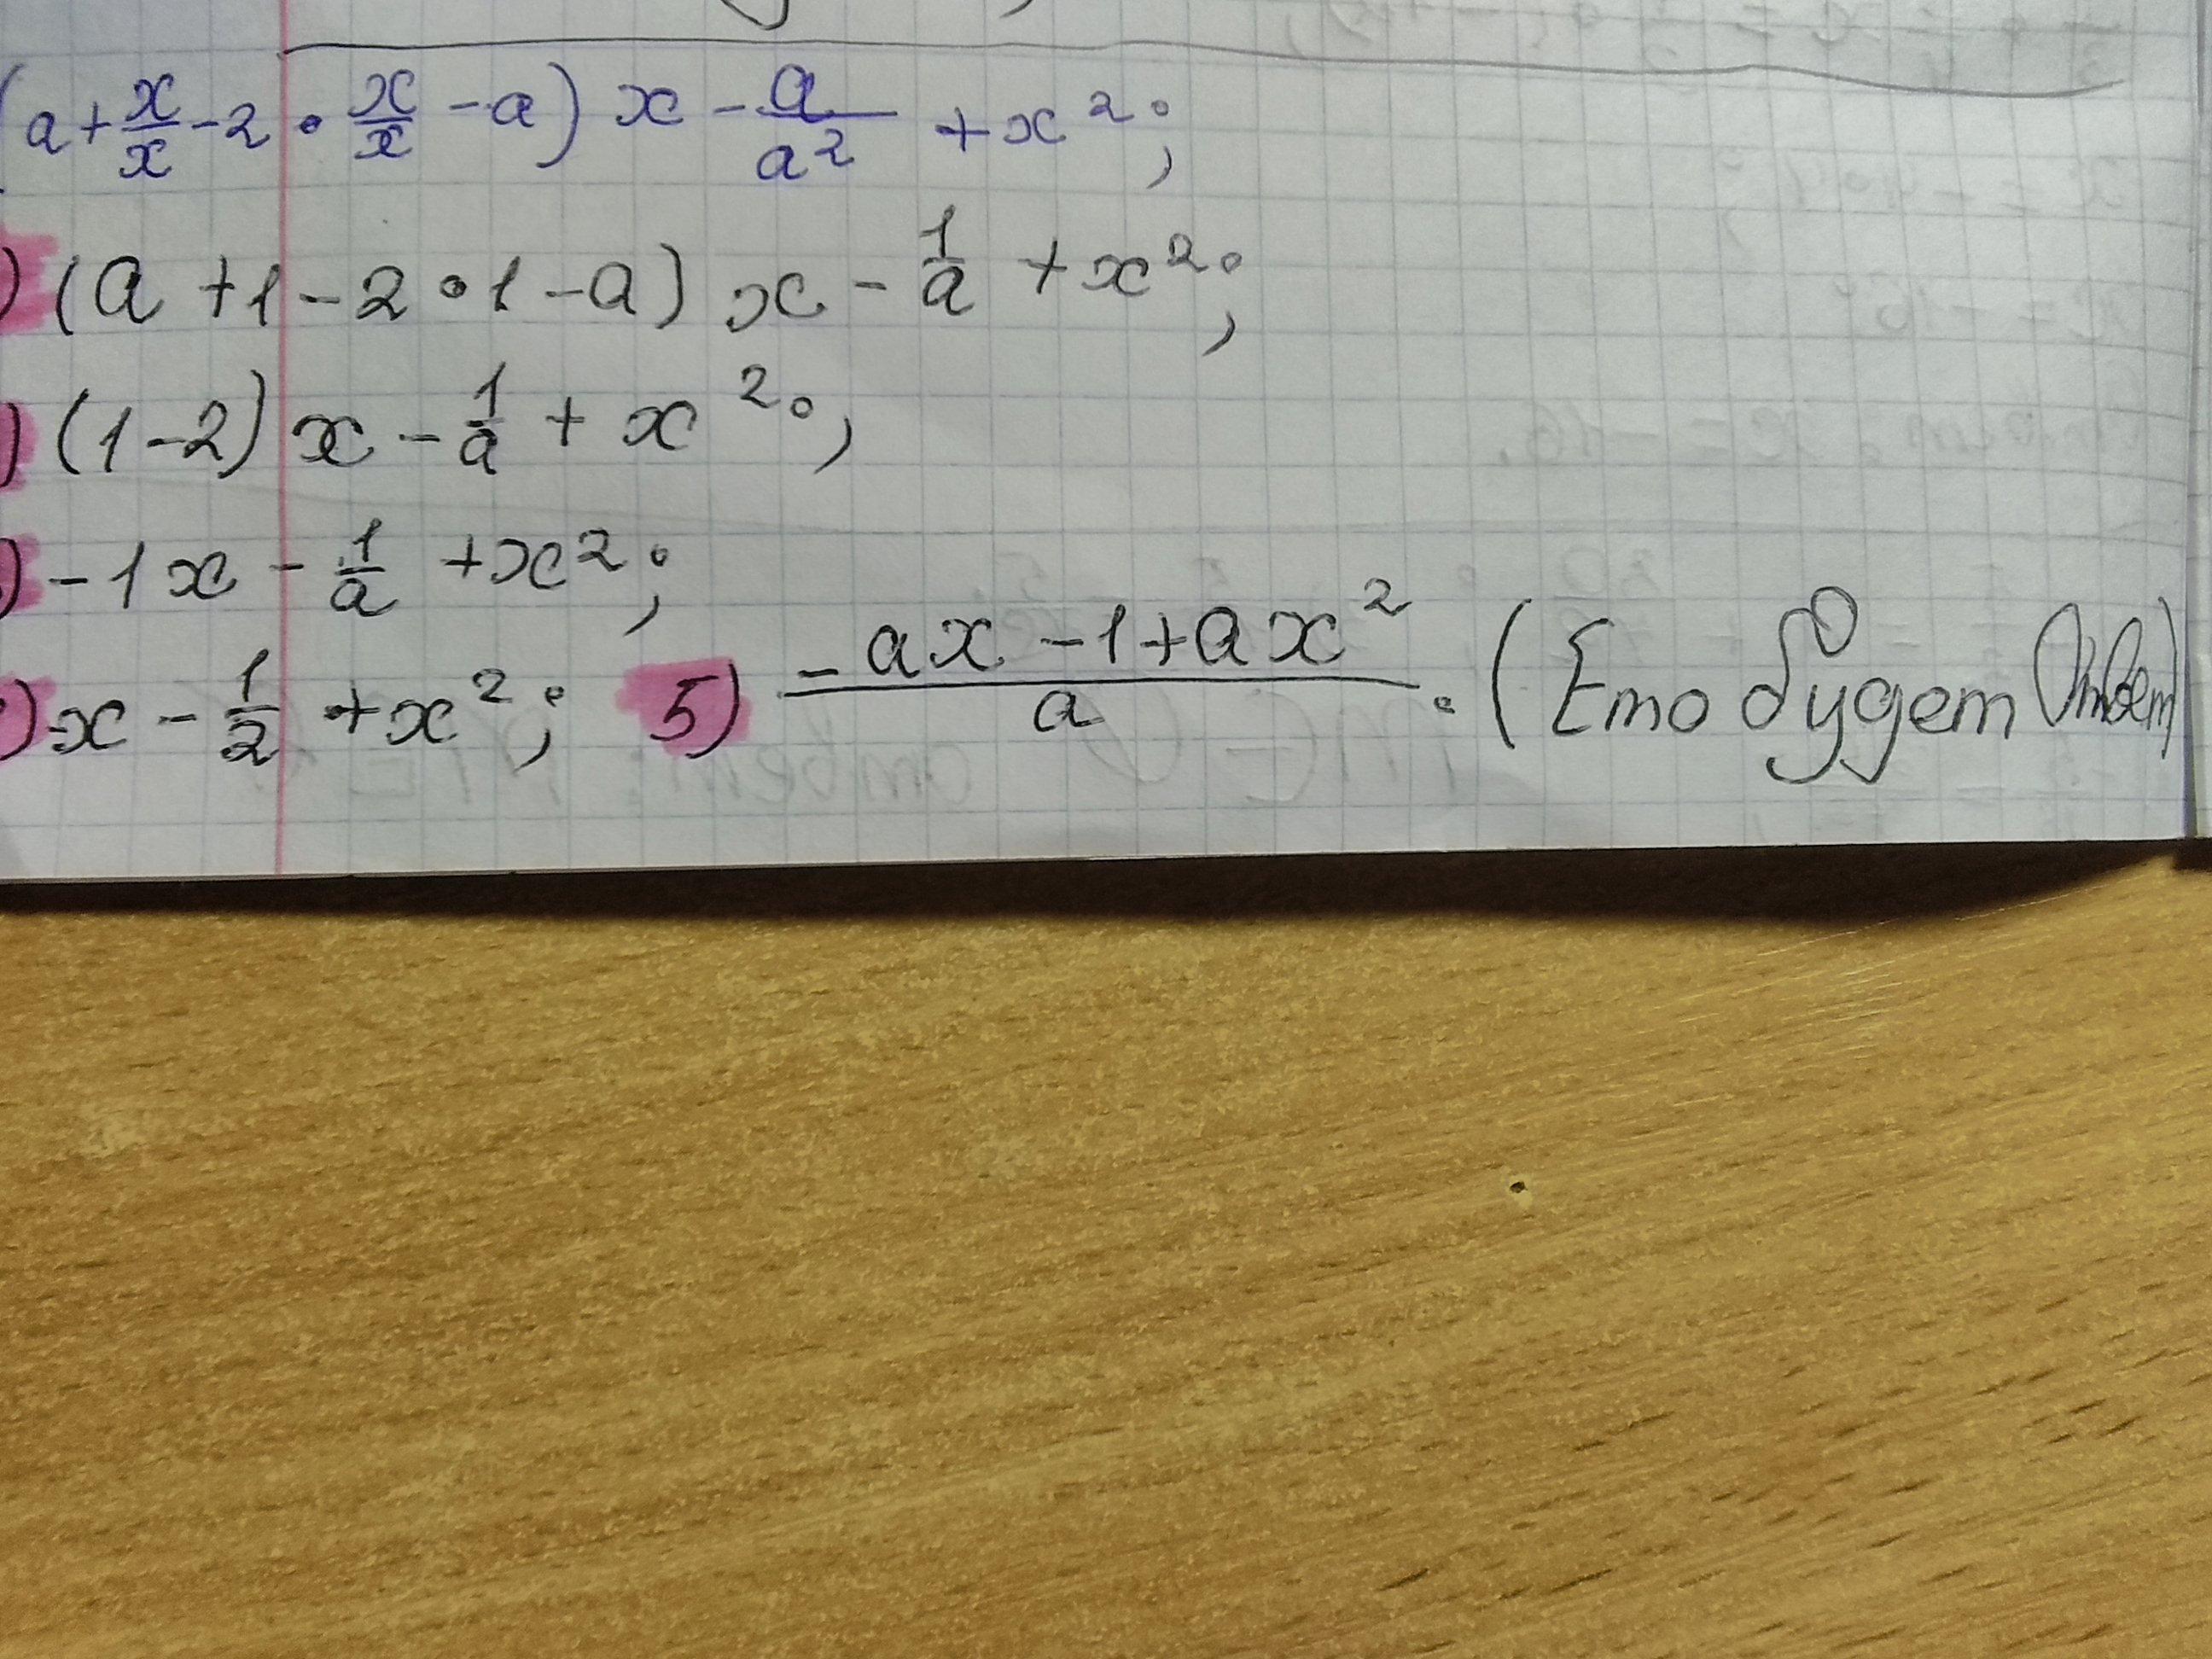 (a + x/x - 2 · x/x - a) x - a/a² + x²;
) (a + 1 - 2 · 1 - a) x - 1/a + x²;
) (1 - 2) x - 1/a + x²;
) - 1x - 1/a + x²;
) x - 1/2 + x²; 5) (-ax - 1 + ax²)/a. (Это будет Ответ)